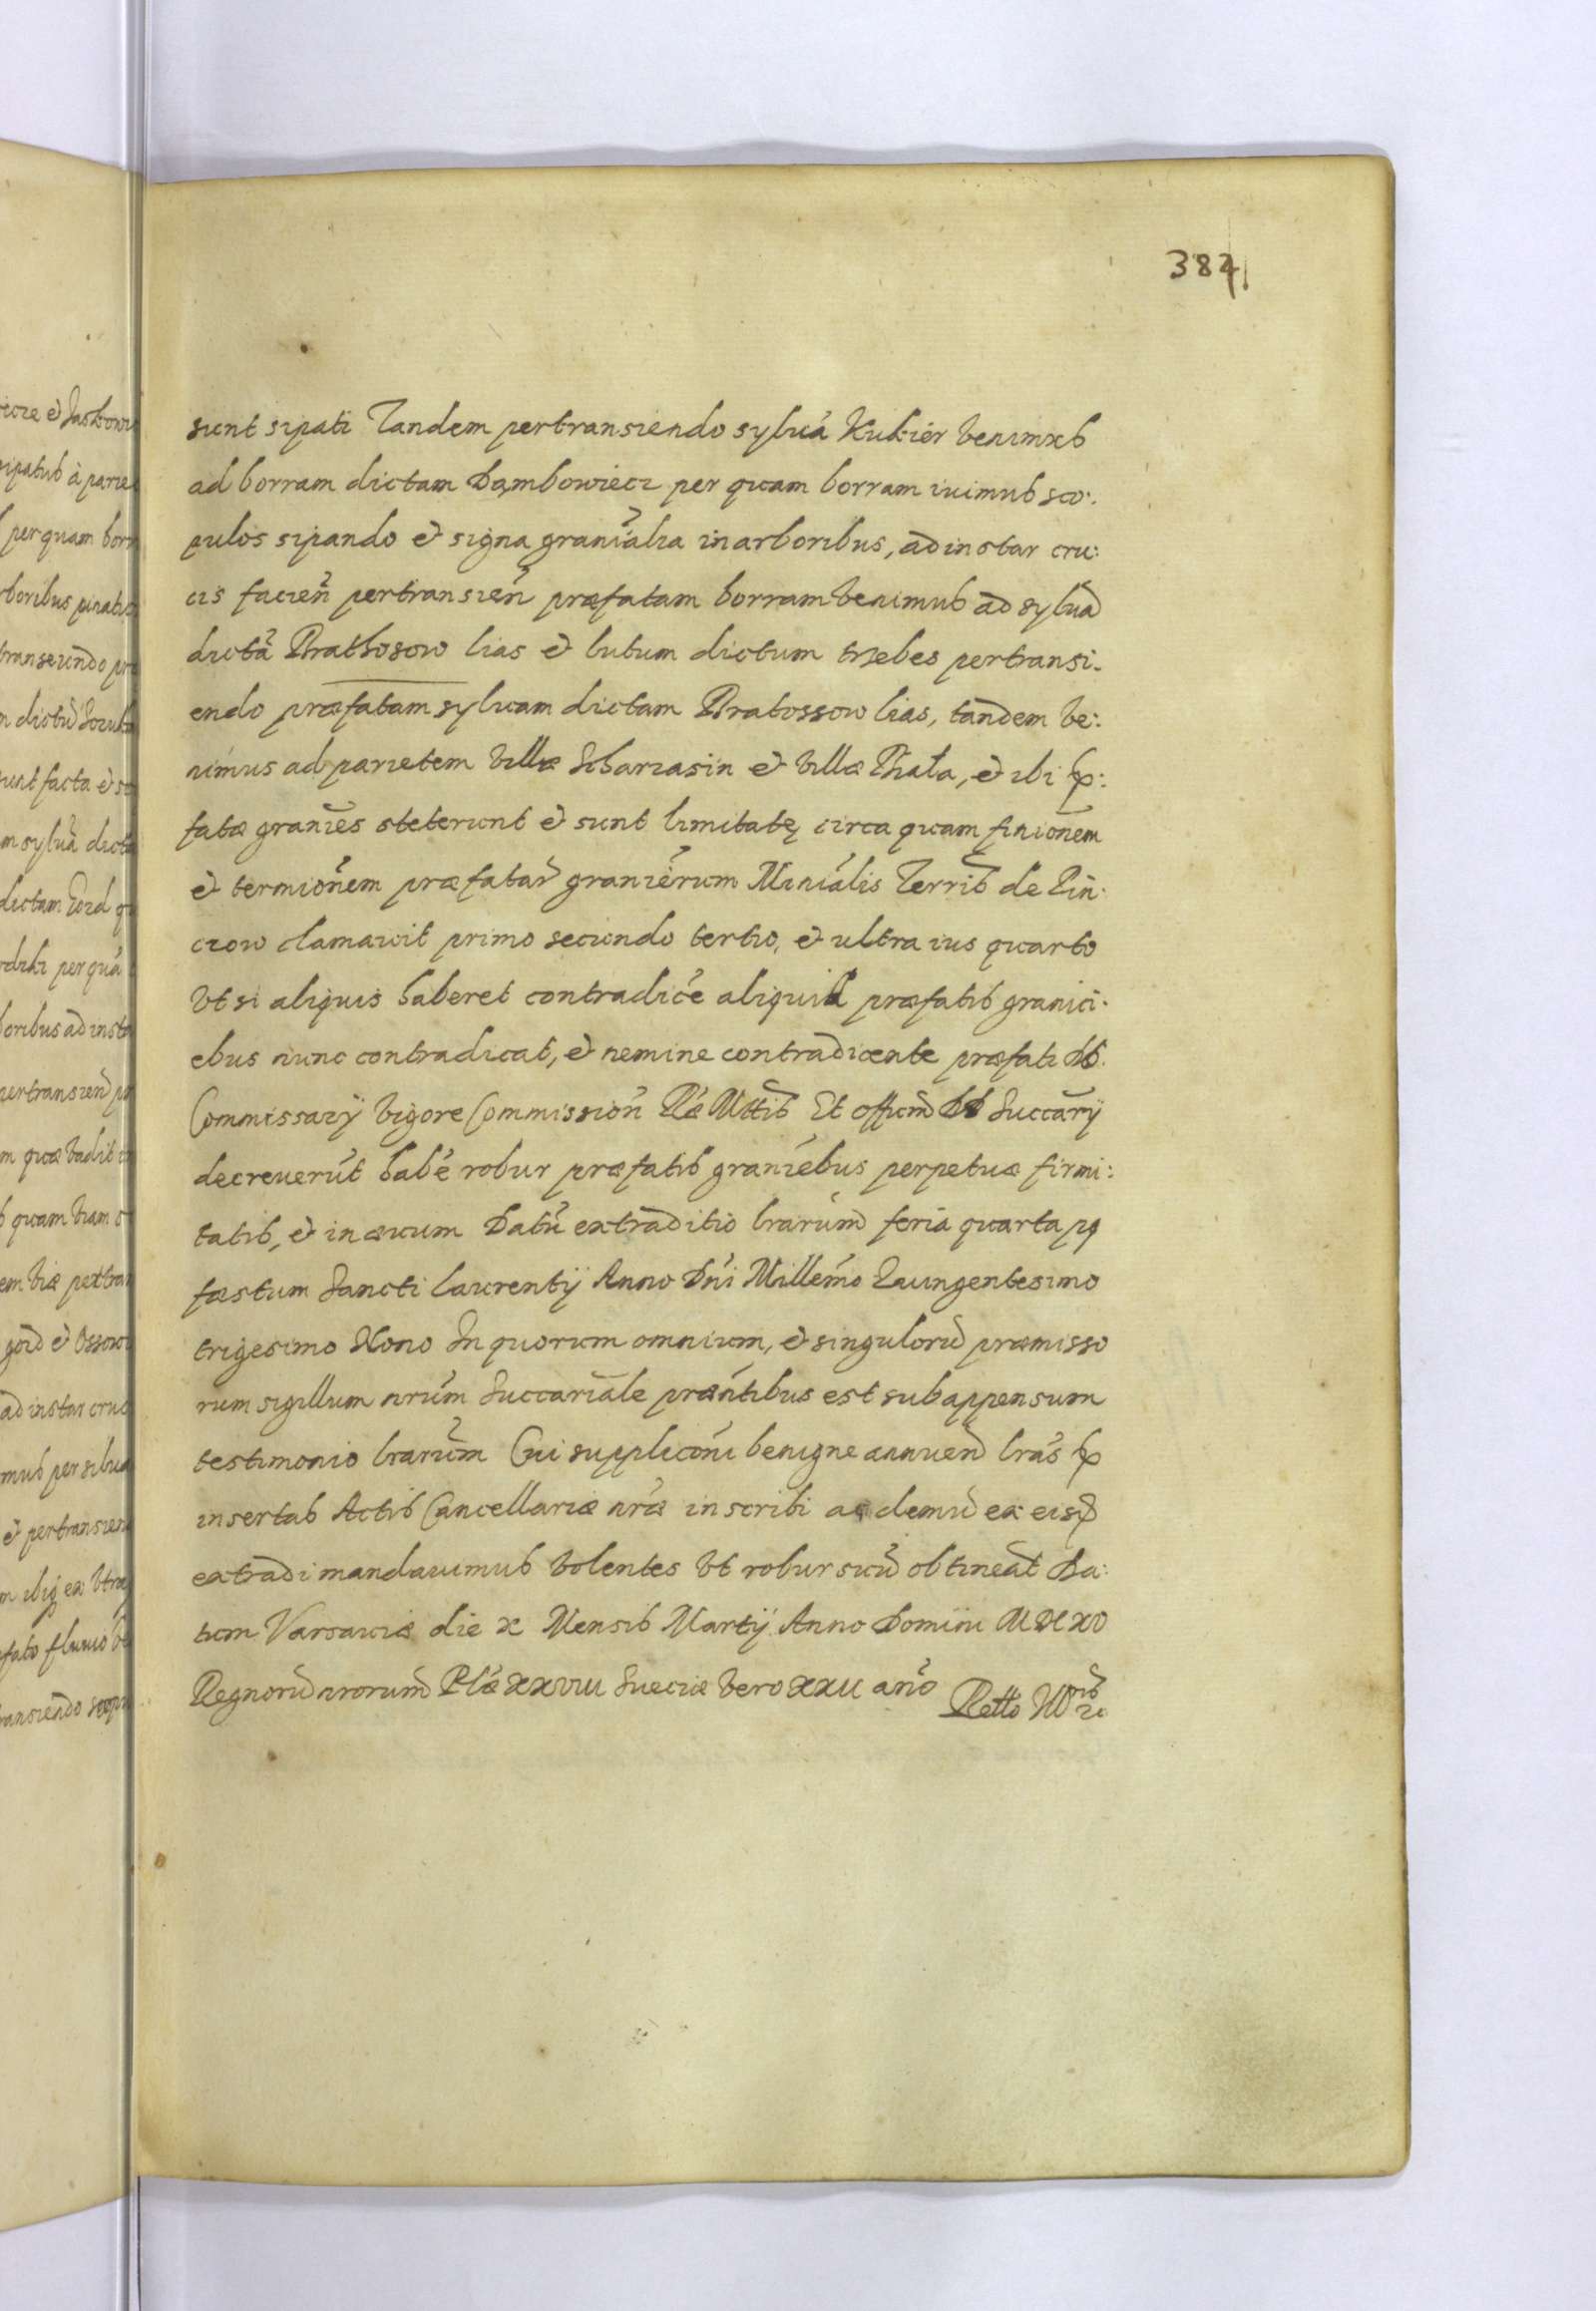 384
sunt sipati Tandem pertransiendo syluá Kukier venimus
ad borram dictam Dąmbowiecz per quam borram iuimus sco:
pulos sipando et signa granialia in arboribus, ad instar cru:
cis facień pertransień præfatam borram venimus ad syluā
dictā Brathosow lias et lutum dictum trzebes pertransi-
endo præfatam syluam dictam Bratossow lias, tandem ve:
nimus ad parietem villæ Scharzasin et villæ Biała, et ibi p:
fatæ granies steterunt et sunt limitatę circa quam finionem
et termionem præfatar̃ granierum Minialis Terris de Pin:
czow clamauit primo secundo tertio, et ultra ius quarto
vt si aliquis haberet contradicé aliquid præfatis granici:
ebus nunc contradicat, et nemine contradicente præfati DD.
Commissarÿ vigore Commission Rǽ Mttis Et officiū DD Succarÿ
decreuerūt habé robur præfatis graniebus perpetuæ firmi:
tatis, et in æuum Datū extraditio lrarum feria quarta pq
fæstum Sancti Laurentÿ Anno Dñi Millemo Quingentesimo
trigesimo Nono In quorum omnium, et singulorū præmisso
rum sigillum nrūm Succariale præntibus est subappensum
testimonio lrarūm Cui suppliconi benigne annuen lras p
insertas Actis Cancellariæ nræ inscribi ac demū ex eisd
extradi mandauimus volentes vt robur suū obtineāt Da:
tum Varsauiæ die x Mensis Martÿ Anno Domini MDCXV
Regnorū nrorum Plǽ XXVIII Sueciæ vero XXII año